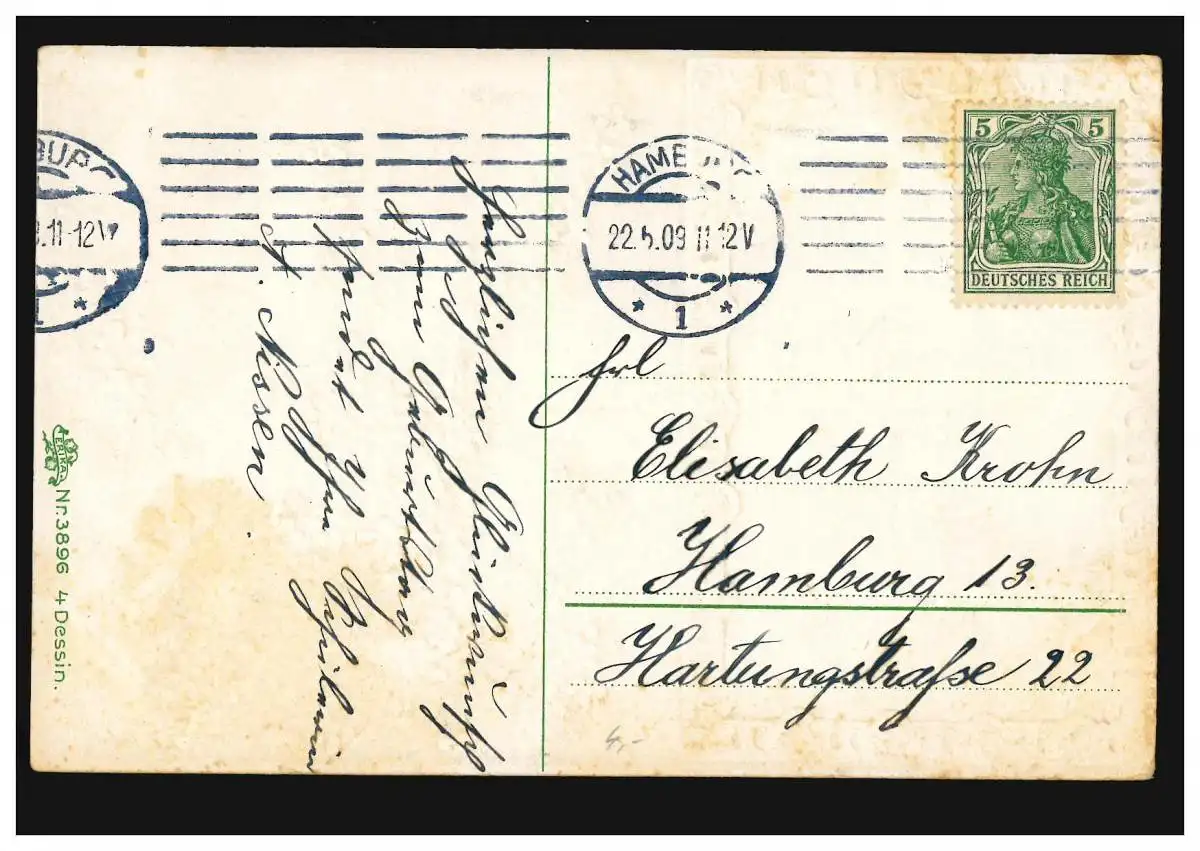 BURG
11-12V
1
HAMBURG
22.5.09 11-12V
* 1 *
5 5
DEUTSCHES REICH
Herzlichen Glückwunsch
zum Geburtstag
sendet Ihre Schülerin
A. Nissen.
Frl
Elisabeth Krohn
Hamburg 13.
Hartungstraße 22
4,-
ERIKA
Nr. 3896 4 Dessin.